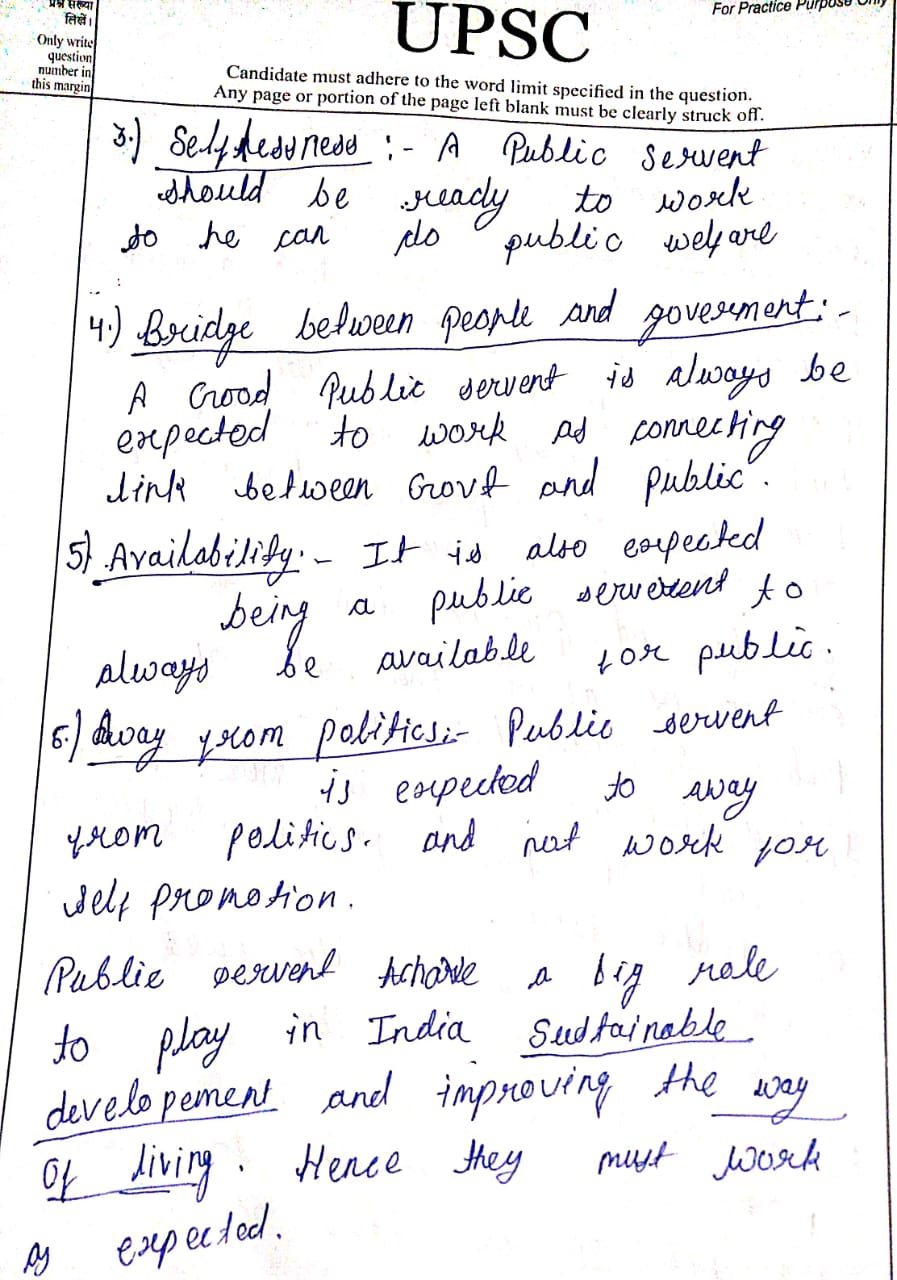 प्रश्न संख्या
लिखें।
Only write
question
number in
this margin
For Practice Purpose Only
UPSC
Candidate must adhere to the word limit specified in the question.
Any page or portion of the page left blank must be clearly struck off.
3.) Selflessness :- A Public servent
should be ready to work
so he can do public welfare
4.) Bridge between people and goverment:-
A Good Public servent is always be
expected to work as connecting
link between Govt and Public.
5) Availability:- It is also expected
being a public servent to
always be available for public.
6.) Away from politics:- Public servent
is expected to away
from politics. and not work for
self promotion.
Public servent have a big role
to play in India Sustainable
developement and improving the way
of living. Hence they must work
as expected.